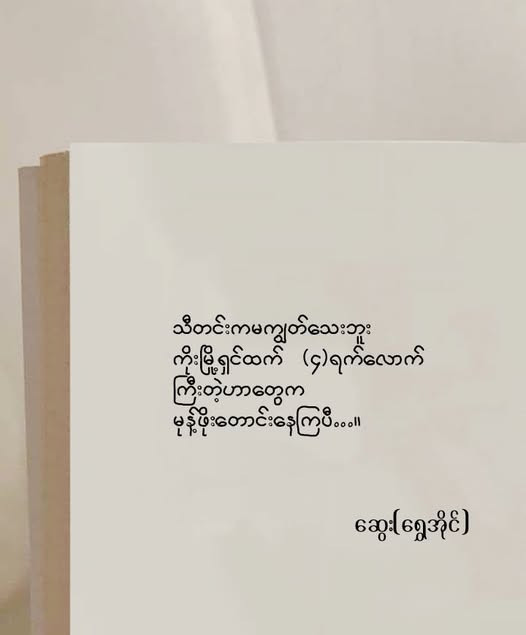 သီတင်းကမကျွတ်သေးဘူး
ကိုးမြို့ရှင်ထက် (၄)ရက်လောက်
ကြီးတဲ့ဟာတွေက
မုန့်ဖိုးတောင်းနေကြပီ...။
ဆွေး(ရွှေအိုင်)